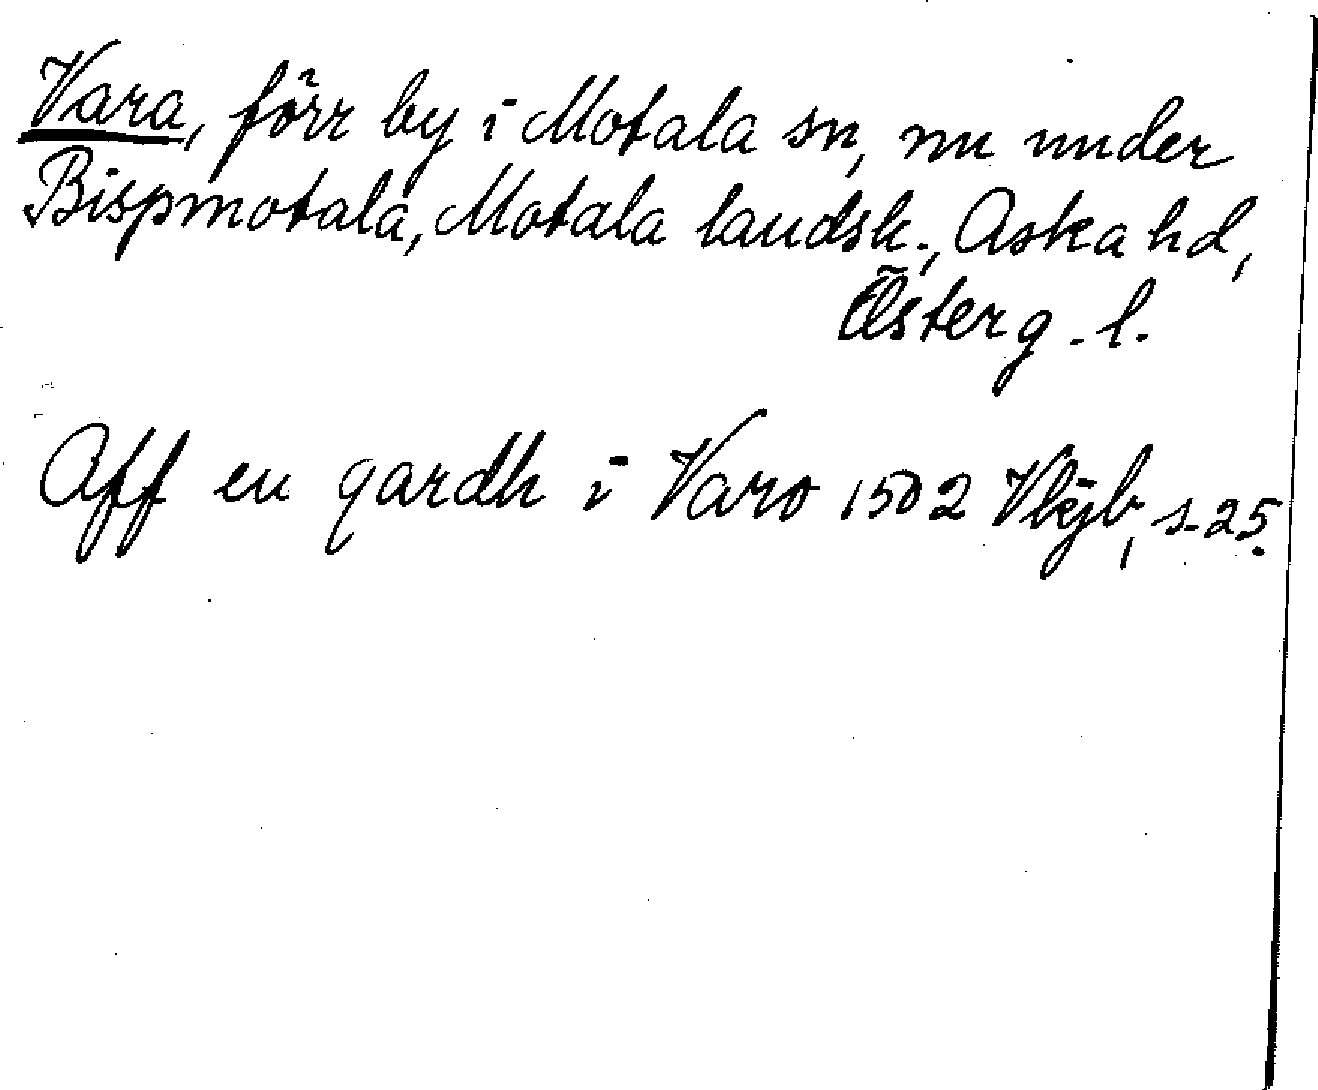 Vara, förr by i Motala sn, nu under
Bispmotala, Motala landsk., Aska hd,
Österg. l.
Aff en gardh i Varo 1502 Vkjb, s. 25.